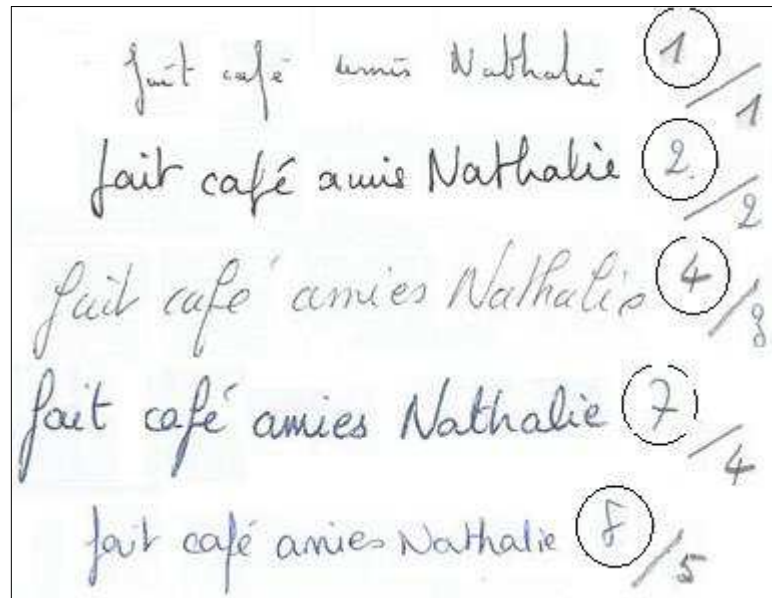 fait café amis Nathalie 1/1
fait café amis Nathalie 2./2
fait café amies Nathalie 4/3
fait café amies Nathalie 7/4
fait café amies Nathalie 8/5